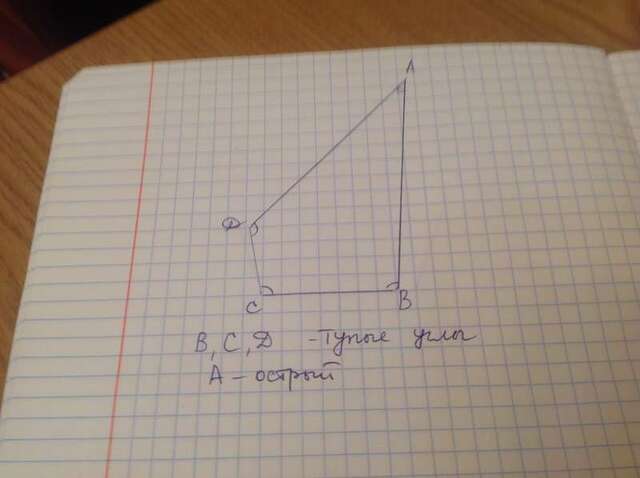 A
D
C
B
B, C, Д - Тупые углы
A - острый